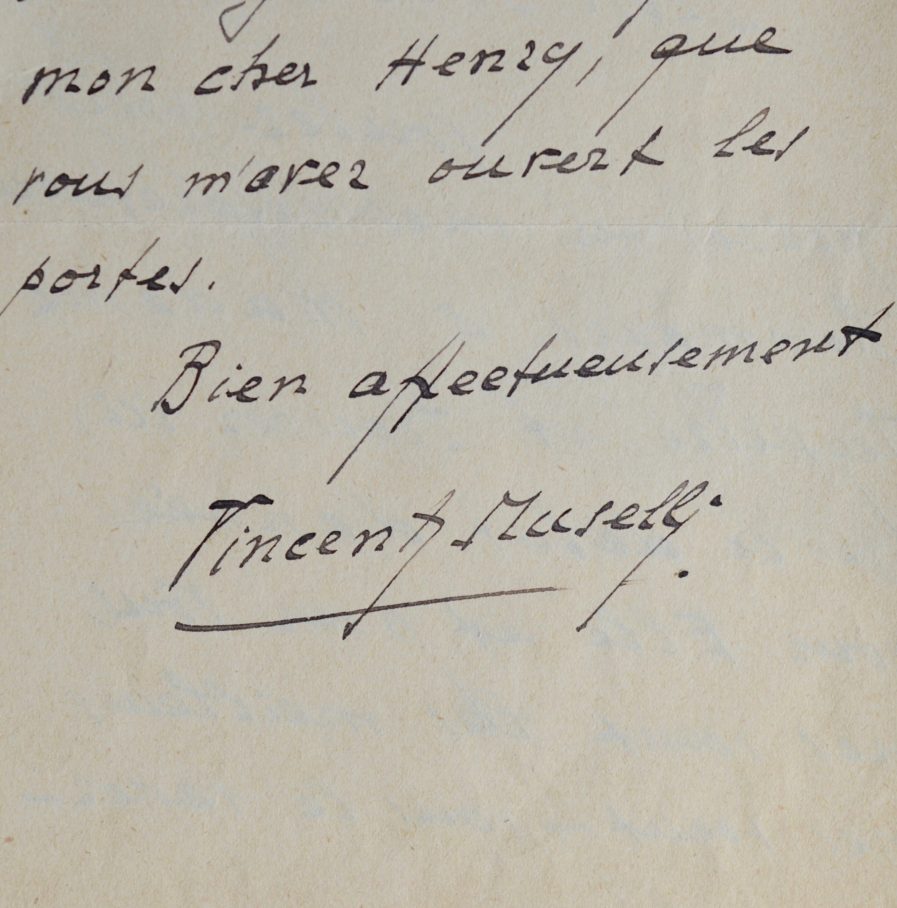 mon cher Henry, que
vous m'avez ouvert les
portes.
Bien affectueusement
Vincent Muselli.